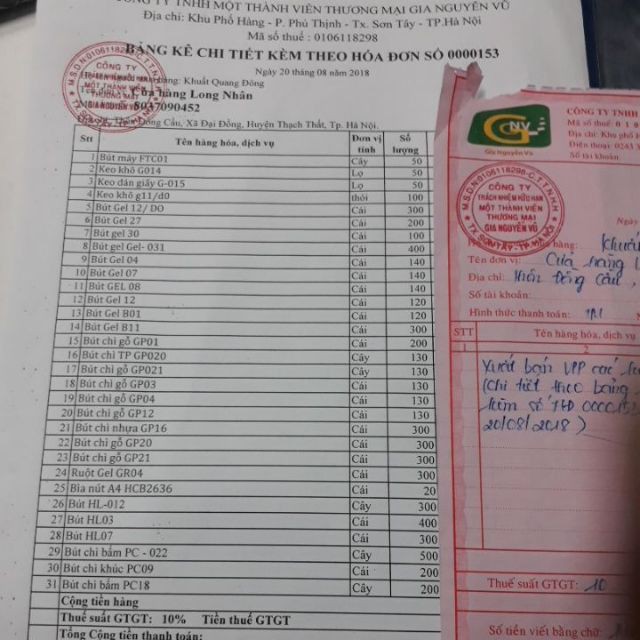 CÔNG TY TNHH MỘT THÀNH VIÊN THƯƠNG MẠI GIA NGUYÊN VŨ
Địa chỉ: Khu Phố Hàng - P. Phú Thịnh - Tx. Sơn Tây - TP.Hà Nội
Mã số thuế : 0106118298
BẢNG KÊ CHI TIẾT KÈM THEO HÓA ĐƠN SỐ 0000153
Ngày 20 tháng 08 năm 2018
hàng: Khuất Quang Đông
Cửa hàng Long Nhân
8037090452
Đồng Cầu, Xã Đại Đồng, Huyện Thạch Thất, Tp. Hà Nội.
Stt Tên hàng hóa, dịch vụ Đơn vị tính Số lượng
1 Bút máy FTC01 Cây 50
2 Keo khô G014 Lọ 50
3 Keo dán giấy G-015 Lọ 50
4 Keo khô g11/d0 thỏi 100
5 Bút Gel 12/ DO Cái 300
6 Bút Gel 27 Cái 200
7 Bút gel 30 Cái 100
8 Bút gel Gel- 031 Cái 400
9 Bút Gel 04 Cái 140
10 Bút Gel 07 Cái 140
11 Bút GEL 08 Cái 140
12 Bút Gel 12 Cái 120
13 Bút Gel B01 Cái 120
14 Bút Gel B11 Cái 300
15 Bút chì gỗ GP01 Cái 200
16 Bút chì TP GP020 Cây 130
17 Bút chì gỗ GP021 Cây 130
18 Bút chì gỗ GP03 Cái 130
19 Bút chì gỗ GP04 Cái 130
20 Bút chì gỗ GP12 Cái 130
21 Bút chì nhựa GP16 Cây 300
22 Bút chì gỗ GP20 Cái 300
23 Bút chì gỗ GP21 Cái 300
24 Ruột Gel GR04 Cái 300
25 Bìa nút A4 HCB2636 Cái 20
26 Bút HL-012 Cây 300
27 Bút HL03 Cái 400
28 Bút HL07 Cây 300
29 Bút chì bấm PC - 022 Cây 500
30 Bút chì khúc PC09 Cái 200
31 Bút chì bấm PC18 Cây 200
Cộng tiền hàng
Thuế suất GTGT: 10% Tiền thuế GTGT
Tổng Cộng tiền thanh toán:
M.S.D.N:0106118298-C.T.T.N.H.H
CÔNG TY
TRÁCH NHIỆM HỮU HẠN
MỘT THÀNH VIÊN
THƯƠNG MẠI
GIA NGUYÊN VŨ
TX. SƠN TÂY - TP. HÀ NỘI
GNV
Gia Nguyên Vũ
CÔNG TY TNHH
Mã số thuế: 0 1 0
Địa chỉ: Khu phố
Điện thoại: 0243
Số tài khoản
M.S.D.N:0106118298-C.T.T.N.H.H
CÔNG TY
TRÁCH NHIỆM HỮU HẠN
MỘT THÀNH VIÊN
THƯƠNG MẠI
GIA NGUYÊN VŨ
TX. SƠN TÂY - TP. HÀ NỘI
hàng: Khuất
Tên đơn vị: Cửa hàng
Địa chỉ: Thôn Đồng Cầu,
Số tài khoản:
Hình thức thanh toán: TM
STT Tên hàng hóa, dịch vụ
1 2
Xuất bán VPP các
(Chi tiết theo bảng
kèm số HĐ 0000153
20/08/2018)
Thuế suất GTGT: 10
Số tiền viết bằng chữ: